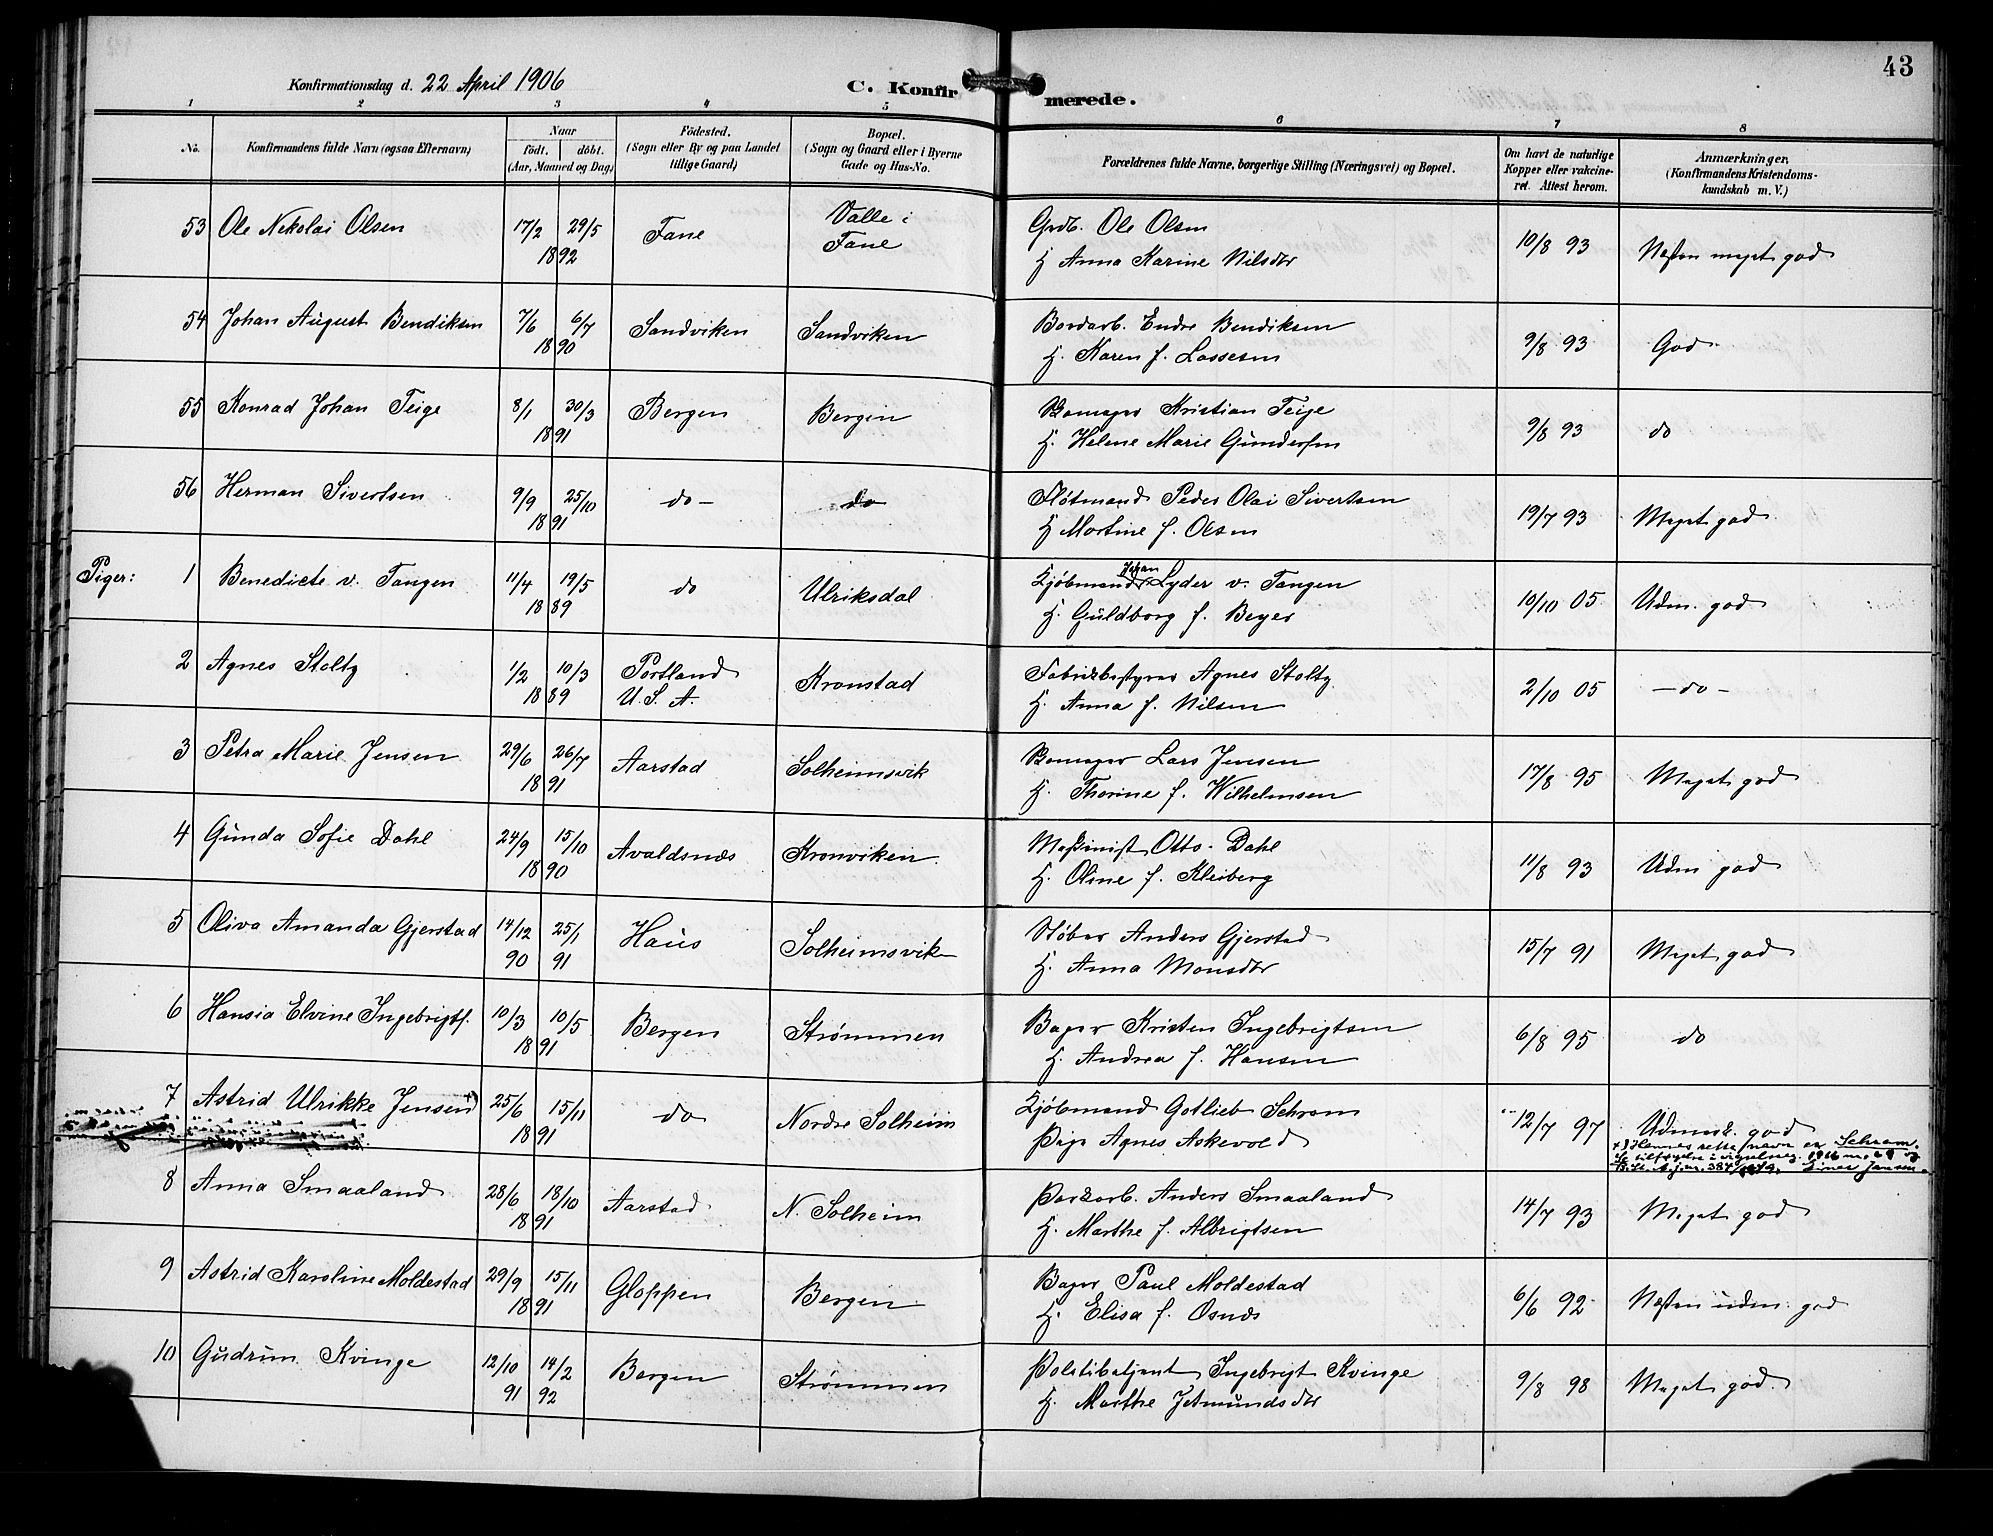 43
Konfirmationsdag d. 22 April 1906
C. Konfirmerede.
1 2 3 4 5 6 7 8
No. Konfirmandens fulde Navn (ogsaa Efternavn) Naar födt. döbt. (Aar, Maaned og Dag) Födested. (Sogn eller By og paa Landet tillige Gaard) Bopæl. (Sogn og Gaard eller i Byerne Gade og Hus-No. Forældrenes fulde Navne, borgerlige Stilling (Næringsvei) og Bopæl. Om havt de naturlige Kopper eller vakcineret. Attest herom. Anmærkninger. (Konfirmandens Kristendomskundskab m. V.)
53 Ole Nikolai Olsen 17/2 29/5 1892 Fane Valle i Fane Grdb. Ole Olsen 10/8 93 Næsten meget god
H Anna Karine Nilsdtr
54 Johan August Bendiksen 7/6 6/7 1890 Sandviken Sandviken Bordarb. Endre Bendiksen 9/8 93 God
H. Karen f. Lassesen
55 Konrad Johan Teige 8/1 30/3 1891 Bergen Bergen Kristian Teige 9/8 93 do
H. Helene Marie Gundersen
56 Herman Sivertsen 9/9 25/10 1891 do - do Fløtmand Peder Olai Sivertsen 19/7 93 Meget god
H Martine f. Olsen
Piger: 1 Benedicte v. Tangen 11/4 19/5 1889 do Ulriksdal Kjøbmand Johan Lyder v. Tangen 10/10 05 Udm. god
H. Guldborg f. Beyer
2 Agnes Stoltz 1/2 10/3 1889 Portland U. S. A. Kronstad Fabrikbestyrer Agnes Stoltz 2/10 05 - do -
H. Anna f. Nilsen
3 Petra Marie Jensen 29/6 26/7 1891 Aarstad Solheimsvik Lars Jensen 17/8 95 Meget god
H. Thorine f. Wilhelmsen
4 Gunda Sofie Dahl 24/9 15/10 1890 Avaldsnæs Kronviken Maskinist Otto Dahl 11/8 93 Udm god
H. Oline f. Kleiberg
5 Oliva Amanda Gjerstad 14/12 90 25/1 91 Haus Solheimsvik Støber Anders Gjerstad 15/7 91 Meget god
H. Anna Monsdtr
6 Hansia Elvine Ingebrigts. 10/3 10/5 1891 Bergen Strømmen Bager Kristen Ingebrigtsen 6/8 95 do
H. Andrea f. Hansen
7 Astrid Ulrikke Jensen 25/6 15/11 1891 do Nordre Solheim Kjøbmand Gotlieb Schram 12/7 97 Udmerk. god
Pige Agnes Askevold
Hennes rette navn er Schram.
8 Anna Smaaland 28/6 18/10 1891 Aarstad N. Solheim Anders Smaaland 14/7 93 Meget god
H. Marthe f. Albrigtsen
9 Astrid Karoline Moldestad 29/9 15/11 1891 Gloppen Bergen Bager Paul Moldestad 6/6 92 Næsten udm. god
H. Elisa f. Osnæs
10 Gudrun Kvinge 12/10 91 14/2 92 Bergen Strømmen Politibetjent Ingebrigt Kvinge 9/8 98 Meget god.
H. Marthe Jetmundsdtr